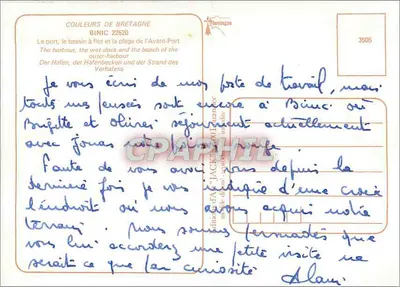 COULEURS DE BRETAGNE
BINIC 22520
Le port, le bassin à flot et la plage de l'Avant-Port
The harbour, the wet dock and the beach of the outer-harbour
Der Hafen, der Hafenbecken und der Strand des Vorhafens
3505
Je vous écris de mon poste de travail, mais
toutes mes pensées sont encore à Binic où
Brigitte et Olivier séjournent actuellement
avec Jonas notre
CPAPHIL
Faute de vous avoir vus depuis la
dernière fois je vous indique d'une croix
l'endroit où nous avons acquis notre
terrain. Nous sommes persuadés que
vous lui accorderez une petite visite ne
serait ce que par curiosité
Alain